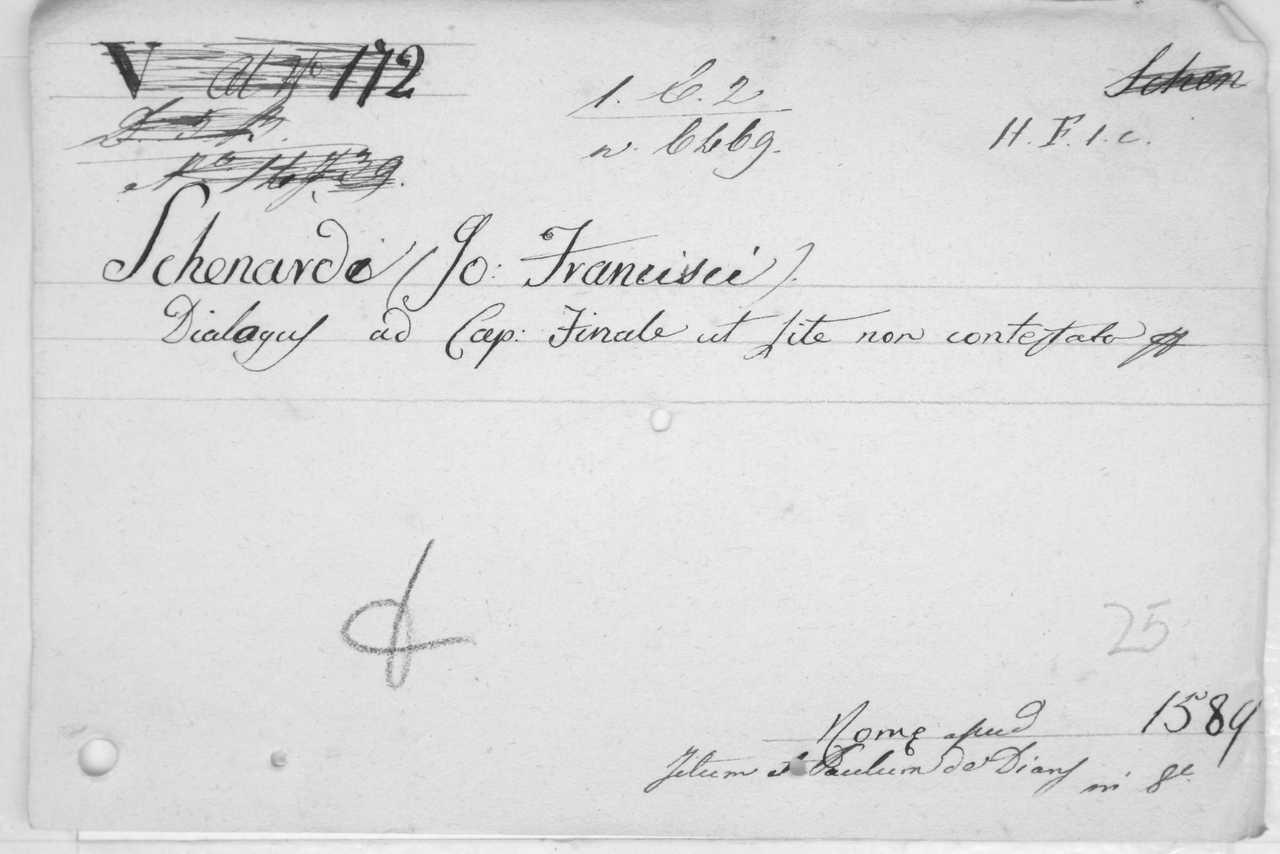 V 172
1. C. 2
Schen
n. 6469.
H. F. 1. c.
Schenardi (Jo: Francisci).
Dialogus ad Cap: Finale ut lite non contestata
25
Romę apud 1589
Titum et Paulum de Dianis in 8º